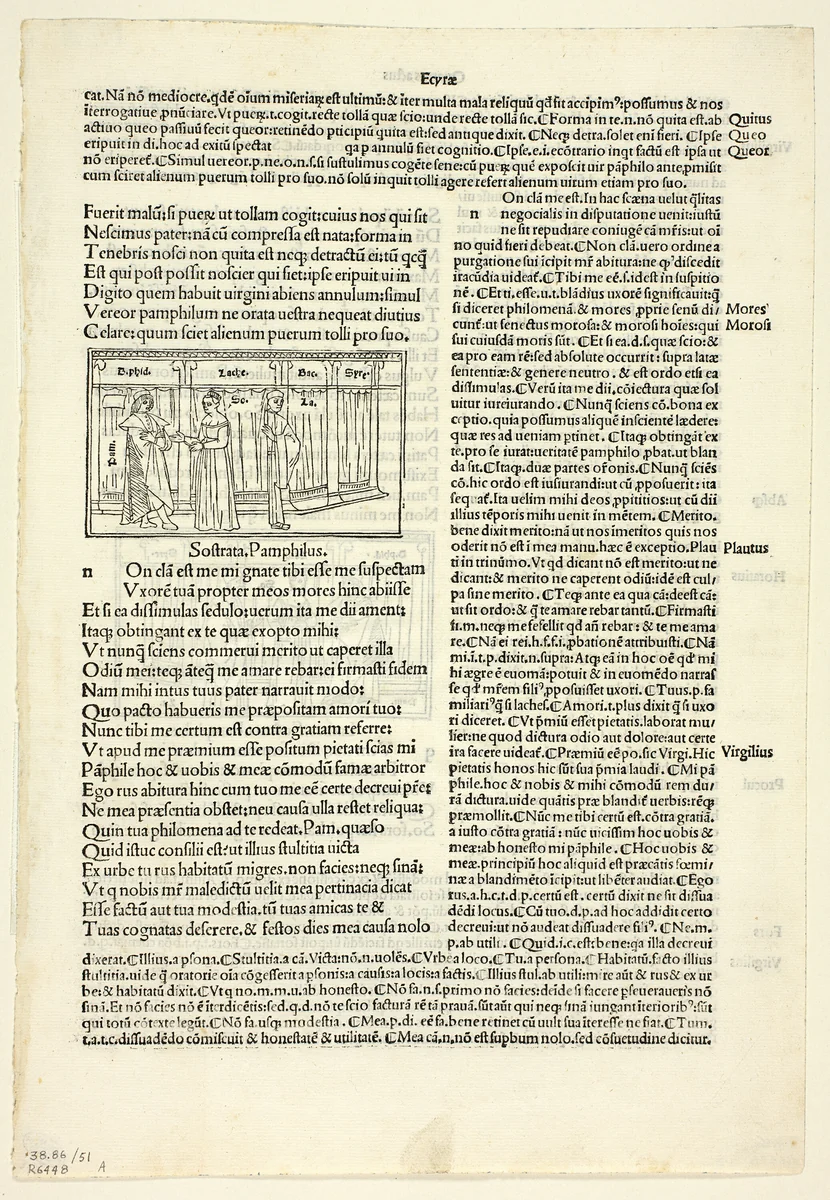 Ecyræ
cat. Nā nō mediocre. qdē oium miseriaꝝ est ultimū: & iter multa mala reliquū qd fit accipim⁹: possumus & nos
iterrogatiue pnūciare. Vt pueꝝ. t. cogit. recte tollā quæ scio: unde recte tollā sic. ⸿Forma in te. n. nō quita est. ab Quitus
actiuo queo passiuū fecit queor: retinēdo pticipiū quita est: sed antique dixit. ⸿Neqꝫ detra. solet eni fieri. ⸿Ipse Queo
eripuit in di. hoc ad exitū spectat ga p annulū fiet cognitio. ⸿Ipse. e. i. ecōtrario inqt factū est ipsa ut Queor
nō eriperet̄. ⸿Simul uereor. p. ne. o. n. s. si sustulimus cogēte sene: cū pueꝝ quē exposcit uir pāphilo ante, pmisit
cum sciret alienum puerum tolli pro suo. nō solū inquit tolli agere refert alienum uirum etiam pro suo.
Fuerit malū: si pueꝝ ut tollam cogit: cuius nos qui sit
Nescimus pater: nā cū compressa est nata: forma in
Tenebris nosci non quita est neqꝫ detractū ei: tū qcq̄
Est qui post possit noscier qui siet: ipse eripuit ui in
Digito quem habuit uirgini abiens annulum: simul
Vereor pamphilum ne orata uestra nequeat diutius
Celare: quum sciet alienum puerum tolli pro suo.
B. phid. Lache. Bac. Syre.
So. La.
Pam.
Sostrata. Pamphilus.
n On clā est me mi gnate tibi esse me suspectam
Vxorē tuā propter meos mores hinc abiisse
Et si ea dissimulas sedulo: uerum ita me dii ament:
Itaqꝫ obtingant ex te quæ exopto mihi:
Vt nunq̄ sciens commerui merito ut caperet illa
Odiū mei: teqꝫ āteq̄ me amare rebar: ei firmasti fidem
Nam mihi intus tuus pater narrauit modo:
Quo pacto habueris me præpositam amori tuo:
Nunc tibi me certum est contra gratiam referre:
Vt apud me præmium esse positum pietati scias mi
Pāphile hoc & uobis & meæ cōmodū famæ arbitror
Ego rus abitura hinc cum tuo me eē certe decreui pr̄e:
Ne mea præsentia obstet: neu causa ulla restet reliqua:
Quin tua philomena ad te redeat. Pam. quæso
Quid istuc consilii est? ut illius stultitia uicta
Ex urbe tu rus habitatū migres. non facies: neqꝫ sinā:
Vt q nobis mr̄ maledictū uelit mea pertinacia dicat
Esse factū aut tua modestia. tū tuas amicas te &
Tuas cognatas deserere, & festos dies mea causa nolo
On clā me est. In hac scæna uelut q̄litas
n negocialis in disputatione uenit: iustū
ne sit repudiare coniugē cā mr̄is: ut oī
no quid fieri debeat. ⸿Non clā. uero ordine a
purgatione sui īcipit mr̄ abitura: ne q̓ discedit
iracūdia uideat̄. ⸿Tibi me eē. s. idest in suspitio
nē. ⸿Et ti. esse. u. t. blādius uxorē significauit: q̄
si diceret philomenā. & mores pprie senū di/ Mores
cunt̄: ut senectus morosa: & morosi hoīes: qui Morosi
sui cuiusdā moris sūt. ⸿Et si ea. d. s. quæ scio: &
ea pro eam rē: sed absolute occurrit: supra latæ
sententiæ: & genere neutro. & est ordo etsi ea
dissimulas. ⸿Verū ita me dii. cōiectura quæ sol
uitur iureiurando. ⸿Nunq̄ sciens cō. bona ex
ceptio. quia possumus aliquē inscientē lædere:
quæ res ad ueniam ptinet. ⸿Itaqꝫ obtingāt ex
te. pro se iurat: ueritatē pamphilo pbat. ut blan
da sit. ⸿Itaqꝫ. duæ partes or̄onis. ⸿Nunq̄ sciēs
cō. hic ordo est iusiurandi: ut cū pposuerit: ita
sequat̄. Ita uelim mihi deos ppititios: ut cū dii
illius tēporis mihi uenit in mētem. ⸿Merito.
bene dixit merito: nā ut nos īmeritos quis nos
oderit nō est ī mea manu. hæc ē exceptio. Plau Plautus
ti in trinūmo. Vt qd dicant nō est merito: ut ne
dicant: & merito ne caperent odiū: idē est cul/
pa sine merito. ⸿Teqꝫ ante ea qua cā: deest cā:
ut sit ordo: & q̄ te amare rebar tantū. ⸿Firmasti
fi. m. neqꝫ me fefellit qd añ rebar: & te me ama
re. ⸿Nā ei rei. h. f. f. i. pbationē attribuisti. ⸿Nā
mi. i. t. p. dixit. n. supra: Atqꝫ eā in hoc oē qd mi
hi ægre ē euomā: potuit & in euomēdo narras
se qd mr̄em fili⁹, pposuisset uxori. ⸿Tuus. p. fa
miliari⁹ q̄ si laches. ⸿Amori. t. plus dixit q̄ si uxo
ri diceret. ⸿Vt pmiū esset pietatis. laborat mu/
lier: ne quod dictura odio aut dolore: aut certe
ira facere uideat̄. ⸿Præmiū eē po. sic Virgi. Hic Virgilius
pietatis honos hic sūt sua pmia laudi. ⸿Mi pā
phile. hoc & nobis & mihi cōmodū rem du/
rā dictura. uide quātis præ blandit̄ uerbis: rēqꝫ
præmollit. ⸿Nūc me tibi certū est. cōtra gratiā.
a iusto cōtra gratiā: nūc uicissim hoc uobis &
meæ: ab honesto mi pāphile. ⸿Hoc uobis &
meæ. principiū hoc aliquid est præcātis fœmi/
næ a blandimēto īcipit: ut libēter audiat. ⸿Ego
rus. a. h. c. t. d. p. certū est. certū dixit ne sit dissua
dēdi locus. ⸿Cū tuo. d. p. ad hoc addidit certo
decreui: ut nō audeat dissuadere fili⁹. ⸿Ne. m.
p. ab utili. ⸿Quid. i. c. est: bene: qa illa decreui
dixerat. ⸿Illius. a psona. ⸿Stultitia. a cā. Victa: nō. n. uolēs. ⸿Vrbe a loco. ⸿Tu. a persona. ⸿Habitatū. facto illius
stultitia. uide q̄ oratorie oīa cōgesserit a psonis: a causis: a locis: a factis. ⸿Illius stul. ab utili: mire aūt & rus & ex ur
be: & habitatū dixit. ⸿Vt q no. m. m. u. ab honesto. ⸿Nō fa. n. s. primo nō facies: deīde si facere pseueraueris nō
sinā. Et nō facies nō ē īterdicētis: sed. q. d. nō te scio facturā rē tā prauā. sūt aūt qui neqꝫ sinā iungant īteriorib⁹: sūt
qui totū cōtexte legūt. ⸿Nō fa. usqꝫ modestia. ⸿Mea. p. di. eē fa. bene retinet cū uult sua īteresse ne fiat. ⸿Tum.
t. a. t. c. dissuadēdo cōmiscuit & honestatē & utilitatē. ⸿Mea cā. n. nō est supbum nolo. sed cōsuetudine dicitur.
38.86/51
R6448 A